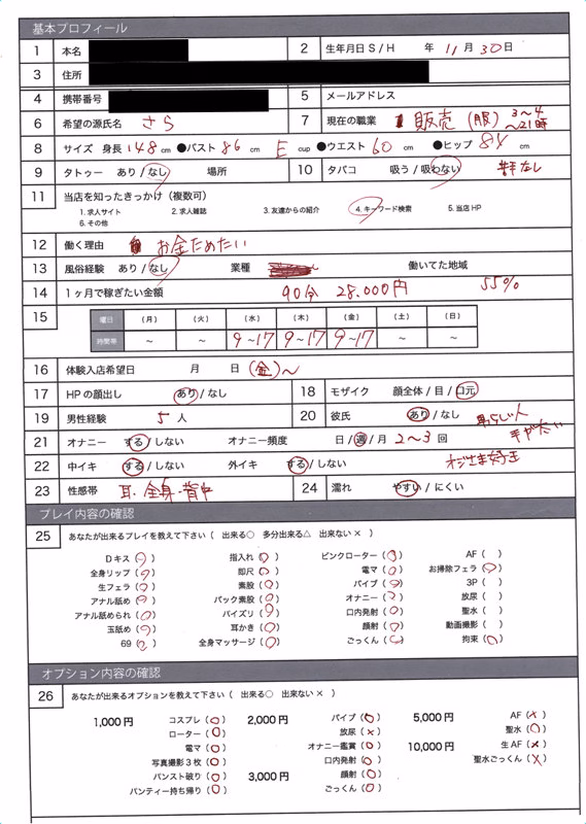 基本プロフィール
1 本名 2 生年月日 S / H 年 11 月 30 日
3 住所
4 携帯番号 5 メールアドレス
6 希望の源氏名 さら 7 現在の職業 販売 (服) 3〜4 〜21時
8 サイズ 身長 148 cm ●バスト 86 cm E cup ●ウエスト 60 cm ●ヒップ 84 cm
9 タトゥー あり / なし 場所 10 タバコ 吸う / 吸わない
11 当店を知ったきっかけ（複数可）
1. 求人サイト 2. 求人雑誌 3. 友達からの紹介 4. キーワード検索 5. 当店 HP
6. その他
12 働く理由 お金ためたい
13 風俗経験 あり / なし 業種 働いてた地域
14 1ヶ月で稼ぎたい金額 90分 28.000円 55%
15 曜日 （月） （火） （水） （木） （金） （土） （日）
時間帯 〜 〜 9〜17 9〜17 9〜17 〜 〜
16 体験入店希望日 月 日 (金)〜
17 HP の顔出し あり / なし 18 モザイク 顔全体 / 目 / 口元
19 男性経験 5 人 20 彼氏 あり / なし
21 オナニー する / しない オナニー頻度 日 / 週 / 月 2〜3 回
22 中イキ する / しない 外イキ する / しない
23 性感帯 耳・全身・背中 24 濡れ やすい / にくい
プレイ内容の確認
25 あなたが出来るプレイを教えて下さい（ 出来る○ 多分出来る△ 出来ない× ）
Dキス（○） 指入れ（○） ピンクローター（○） AF（ ）
全身リップ（○） 即尺（○） 電マ（○） お掃除フェラ（○）
生フェラ（○） 素股（○） バイブ（○） 3P（ ）
アナル舐め（○） バック素股（○） オナニー（○） 放尿（ ）
アナル舐められ（○） パイズリ（○） 口内発射（○） 聖水（ ）
玉舐め（○） 耳かき（○） 顔射（○） 動画撮影（ ）
69（○） 全身マッサージ（○） ごっくん（○） 拘束（○）
オプション内容の確認
26 あなたが出来るオプションを教えて下さい（ 出来る○ 出来ない× ）
1,000円 コスプレ（○） 2,000円 バイブ（○） 5,000円 AF（×）
ローター（○） 放尿（×） 聖水（○）
電マ（○） オナニー鑑賞（○） 10,000円 生AF（×）
写真撮影3枚（○） 口内発射（○） 聖水ごっくん（×）
パンスト破り（○） 3,000円 顔射（○）
パンティー持ち帰り（○） ごっくん（○）